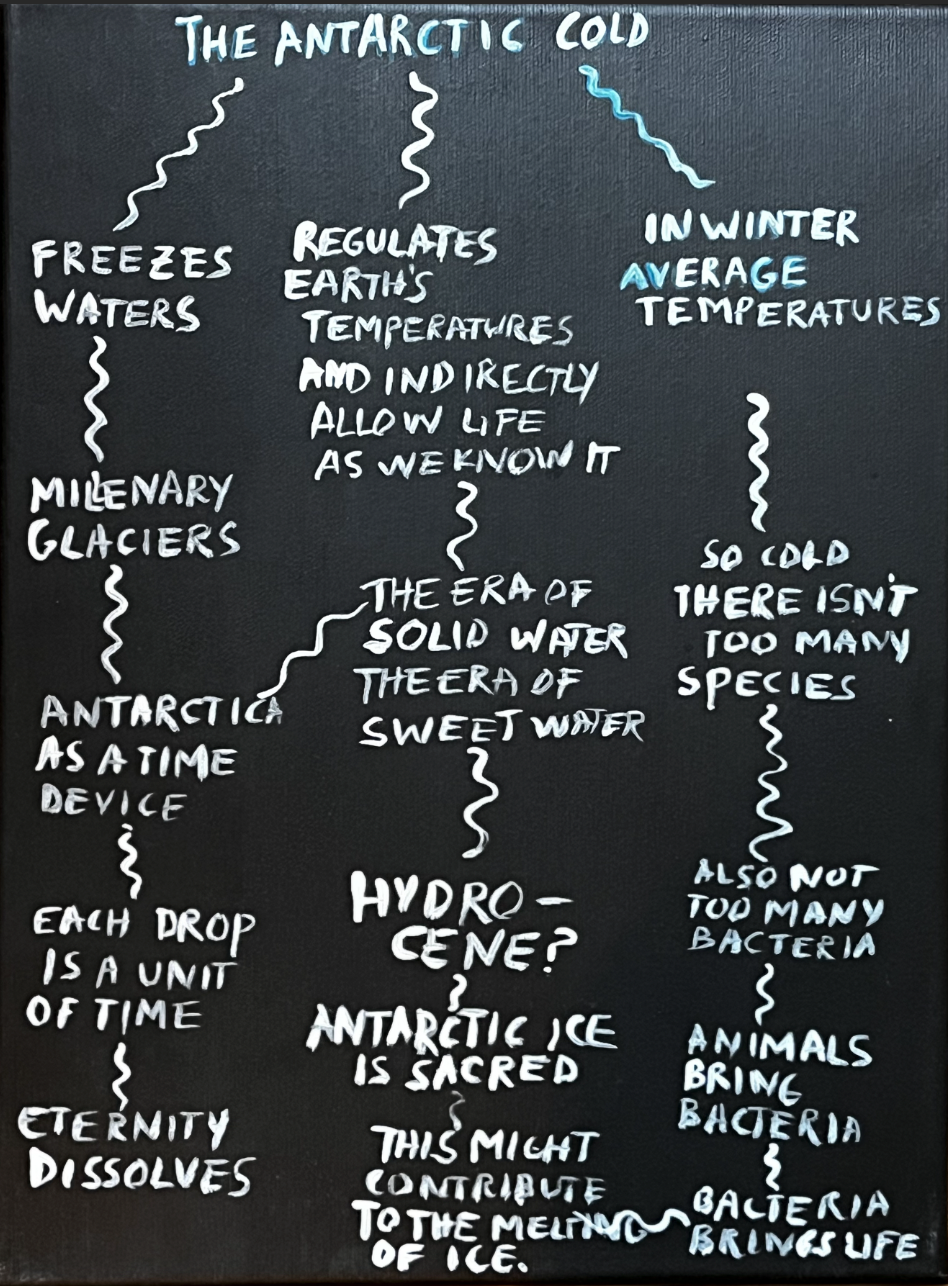 THE ANTARCTIC COLD
FREEZES
WATERS
MILLENARY
GLACIERS
ANTARCTICA
AS A TIME
DEVICE
EACH DROP
IS A UNIT
OF TIME
ETERNITY
DISSOLVES
REGULATES
EARTH'S
TEMPERATURES
AND INDIRECTLY
ALLOW LIFE
AS WE KNOW IT
THE ERA OF
SOLID WATER
THE ERA OF
SWEET WATER
HYDRO-
CENE?
ANTARCTIC ICE
IS SACRED
THIS MIGHT
CONTRIBUTE
TO THE MELTING
OF ICE.
IN WINTER
AVERAGE
TEMPERATURES
SO COLD
THERE ISN'T
TOO MANY
SPECIES
ALSO NOT
TOO MANY
BACTERIA
ANIMALS
BRING
BACTERIA
BACTERIA
BRINGS LIFE